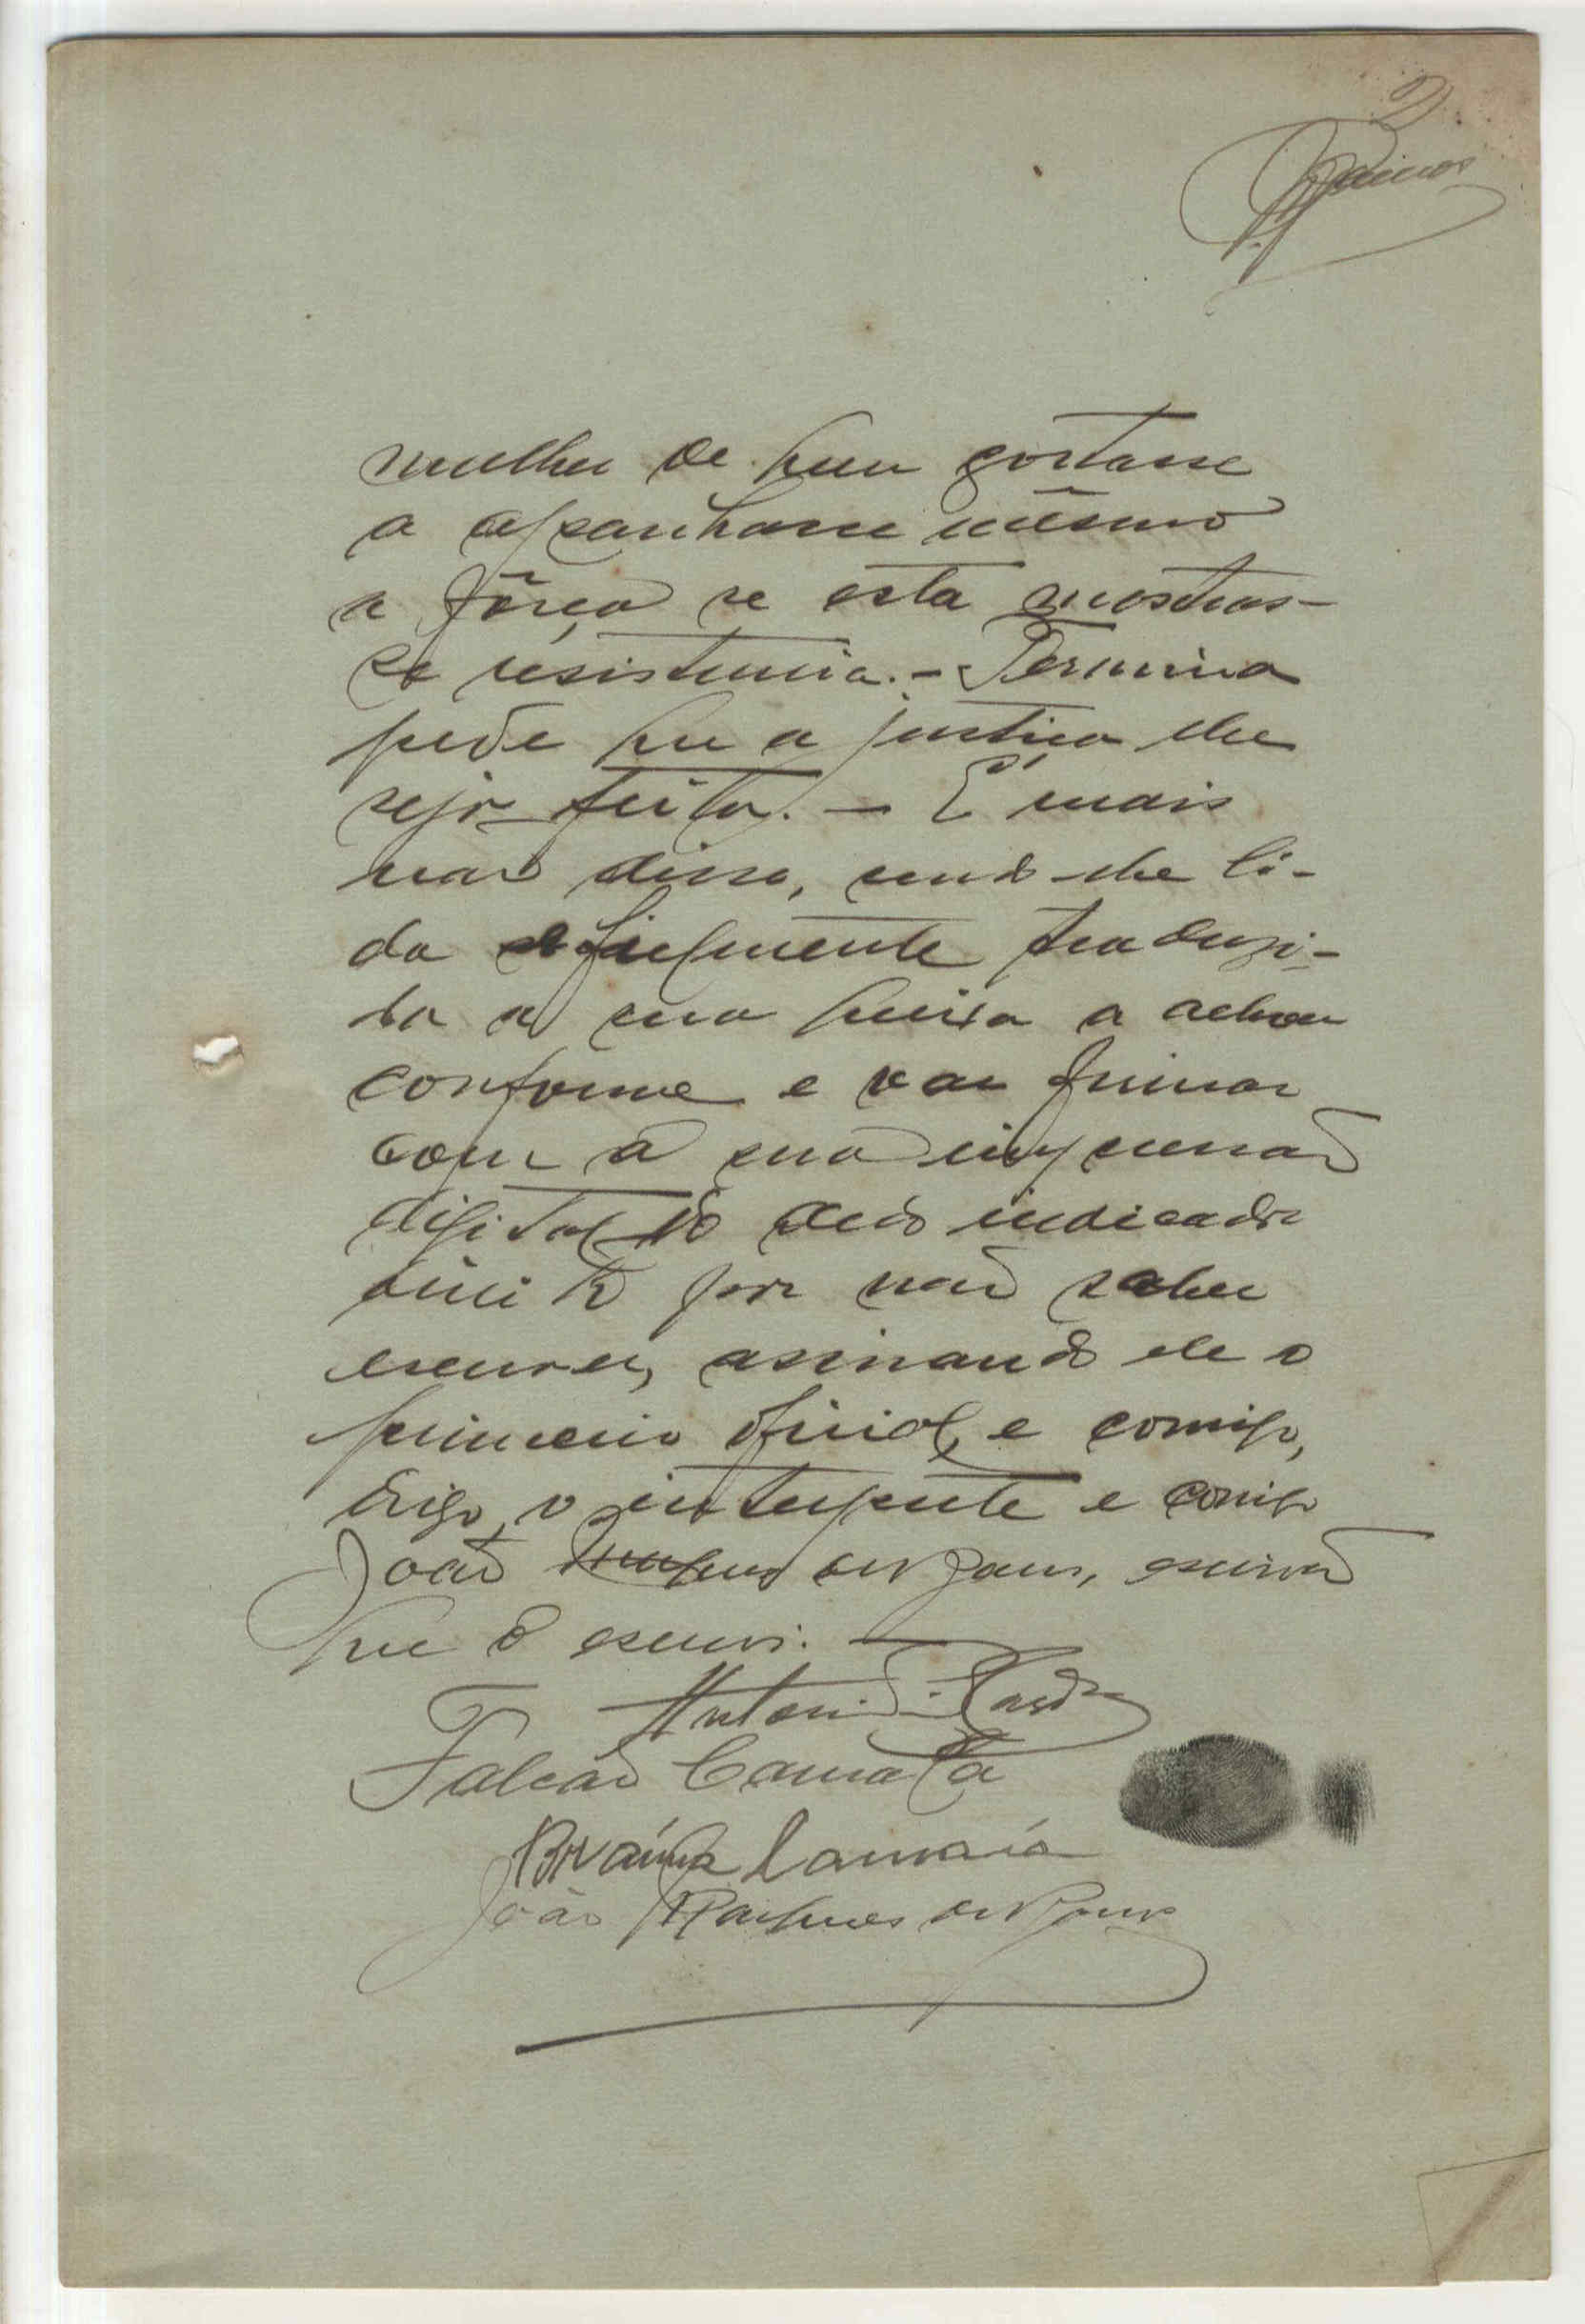 2
Ramos
mulher de quem gostasse
a apanhasse mêsmo
a fôrça se esta mostras-
se resistencia. - Termina
pede que a justiça lhe
seja feita. - E mais
não disse, sendo-lhe li-
da e fielmente traduzi-
da a sua queixa a achou
conforme e vai firmar
com a sua impressão
digital do dedo indicador
direito por não saber
escrever, assinando ele o
primeiro oficial, e comigo,
digo, o interprete e comigo
João Marques de Barros, escrivão
que o escrevi.
Antonio
Falcão Camará
Camará
João Marques de Barros